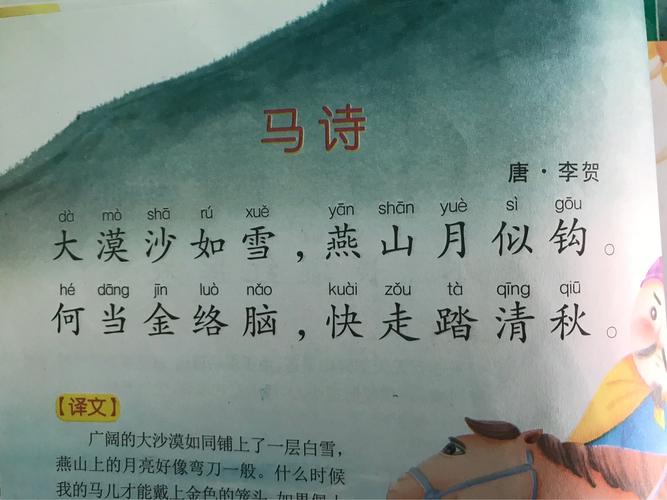 马诗
唐·李贺
dà mò shā rú xuě yān shān yuè sì gōu
大漠沙如雪，燕山月似钩。
hé dāng jīn luò nǎo kuài zǒu tà qīng qiū
何当金络脑，快走踏清秋。
【译文】
广阔的大沙漠如同铺上了一层白雪，
燕山上的月亮好像弯刀一般。什么时候
我的马儿才能戴上金色的笼头，如果侧上